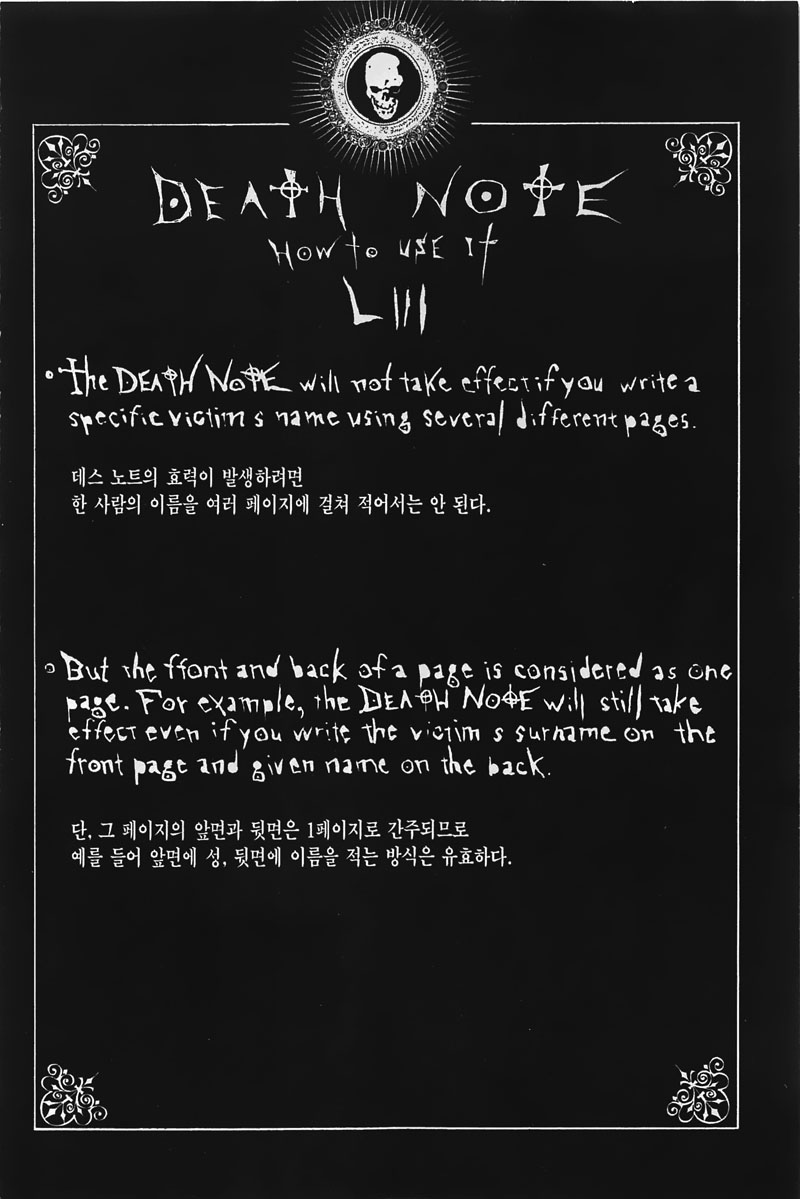 DEATH NOTE
HOW to USE It
LIII
The DEATH NOTE will not take effect if you write a
specific victim s name using several different pages.
데스 노트의 효력이 발생하려면
한 사람의 이름을 여러 페이지에 걸쳐 적어서는 안 된다.
But the ffont and back of a page is considered as one
page. For example, the DEATH NOTE will still take
effect even if you write the victim s surname on the
front page and given name on the back.
단, 그 페이지의 앞면과 뒷면은 1페이지로 간주되므로
예를 들어 앞면에 성, 뒷면에 이름을 적는 방식은 유효하다.